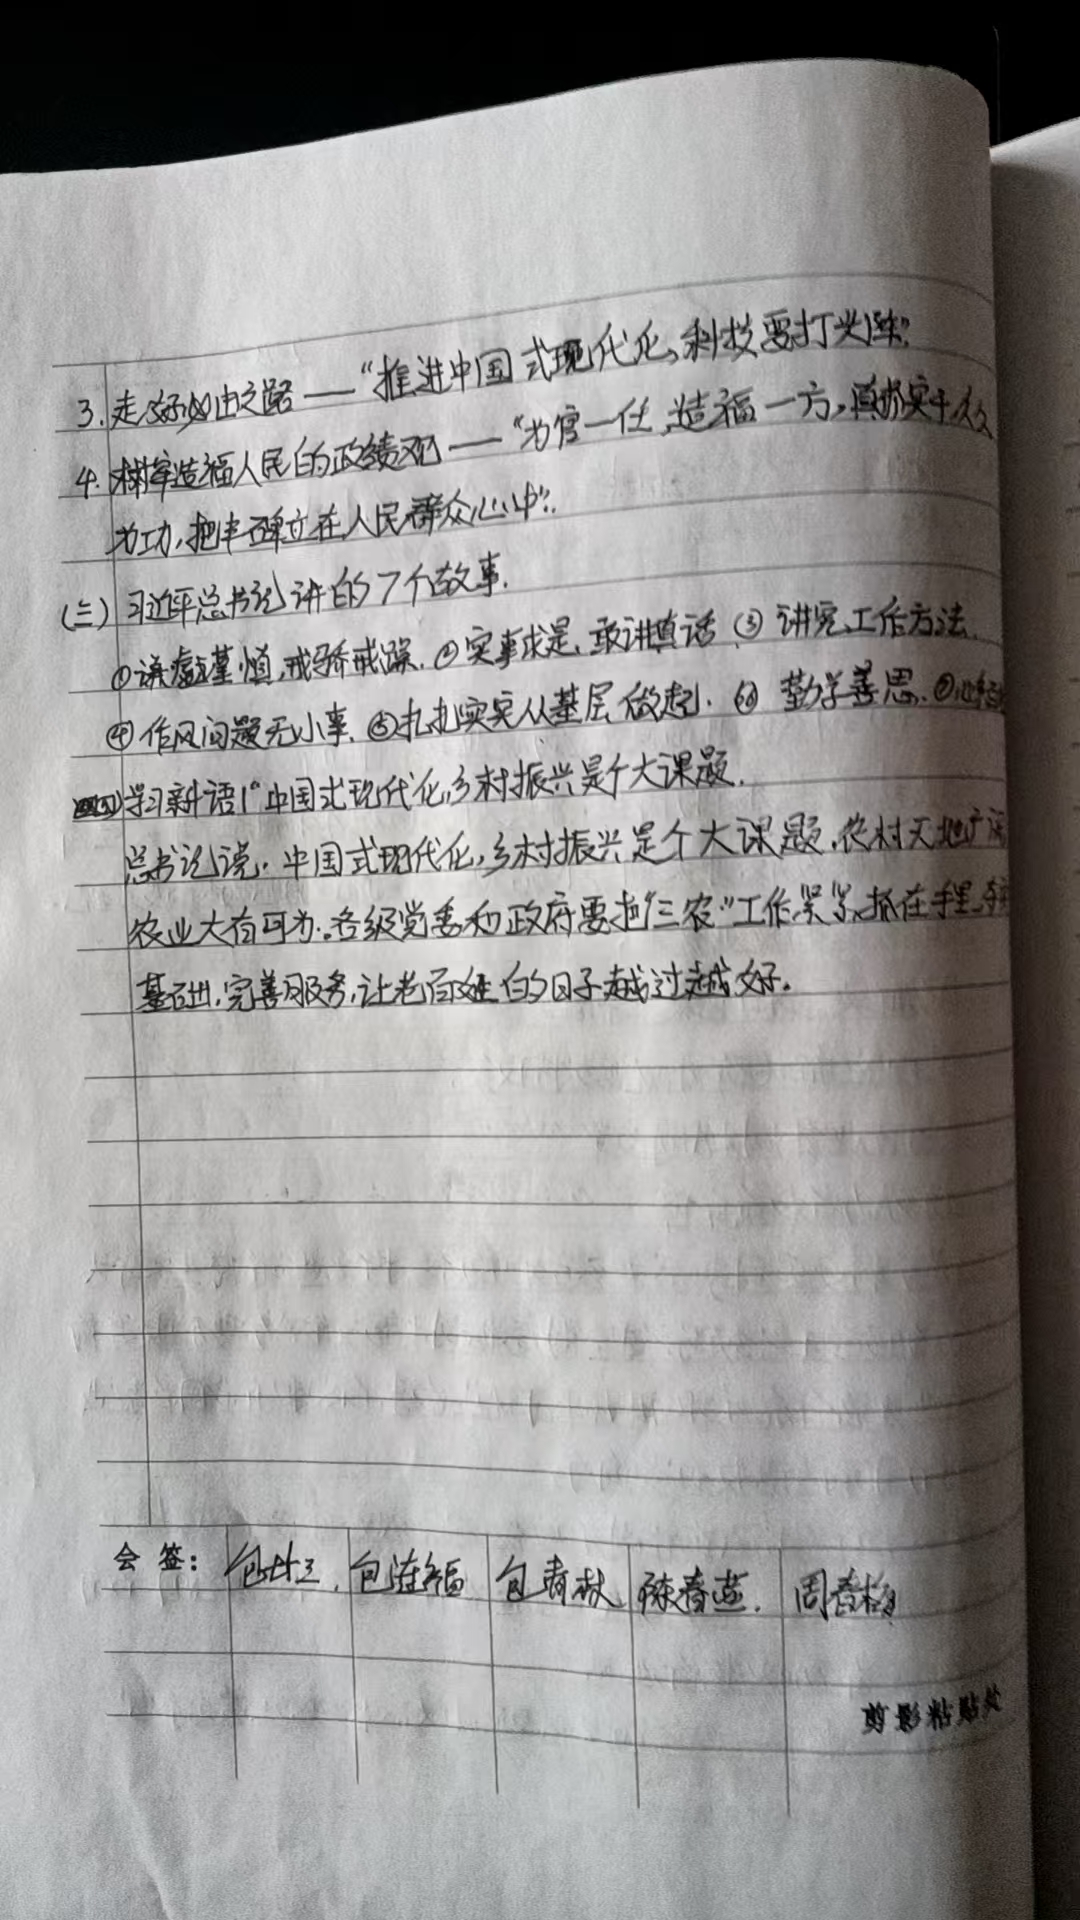 3.走好必由之路——“推进中国式现代化,科技要打头阵”.
4.树牢造福人民的政绩观——“为官一任,造福一方,真抓实干久久
为功,把丰碑立在人民群众心中”.
(三)习近平总书记讲的7个故事.
①谦虚谨慎,戒骄戒躁.②实事求是,敢讲真话.③讲究工作方法.
④作风问题无小事.⑤扎扎实实从基层做起.⑥勤学善思.⑦
(四)学习新语1“中国式现代化,乡村振兴是个大课题.
总书记说:中国式现代化,乡村振兴是个大课题,农村天地广阔
农业大有可为.各级党委和政府要把“三农”工作紧紧抓在手里,夯实
基础,完善服务,让老百姓的日子越过越好。
会 签: 包连福 包青林 陈春燕. 周春梅
剪影粘贴处